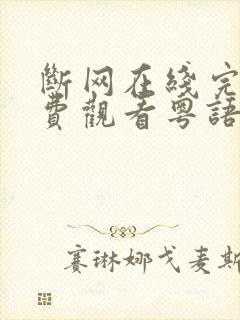 斷网在綫完
費觀看粵語
赛琳娜戈麦斯